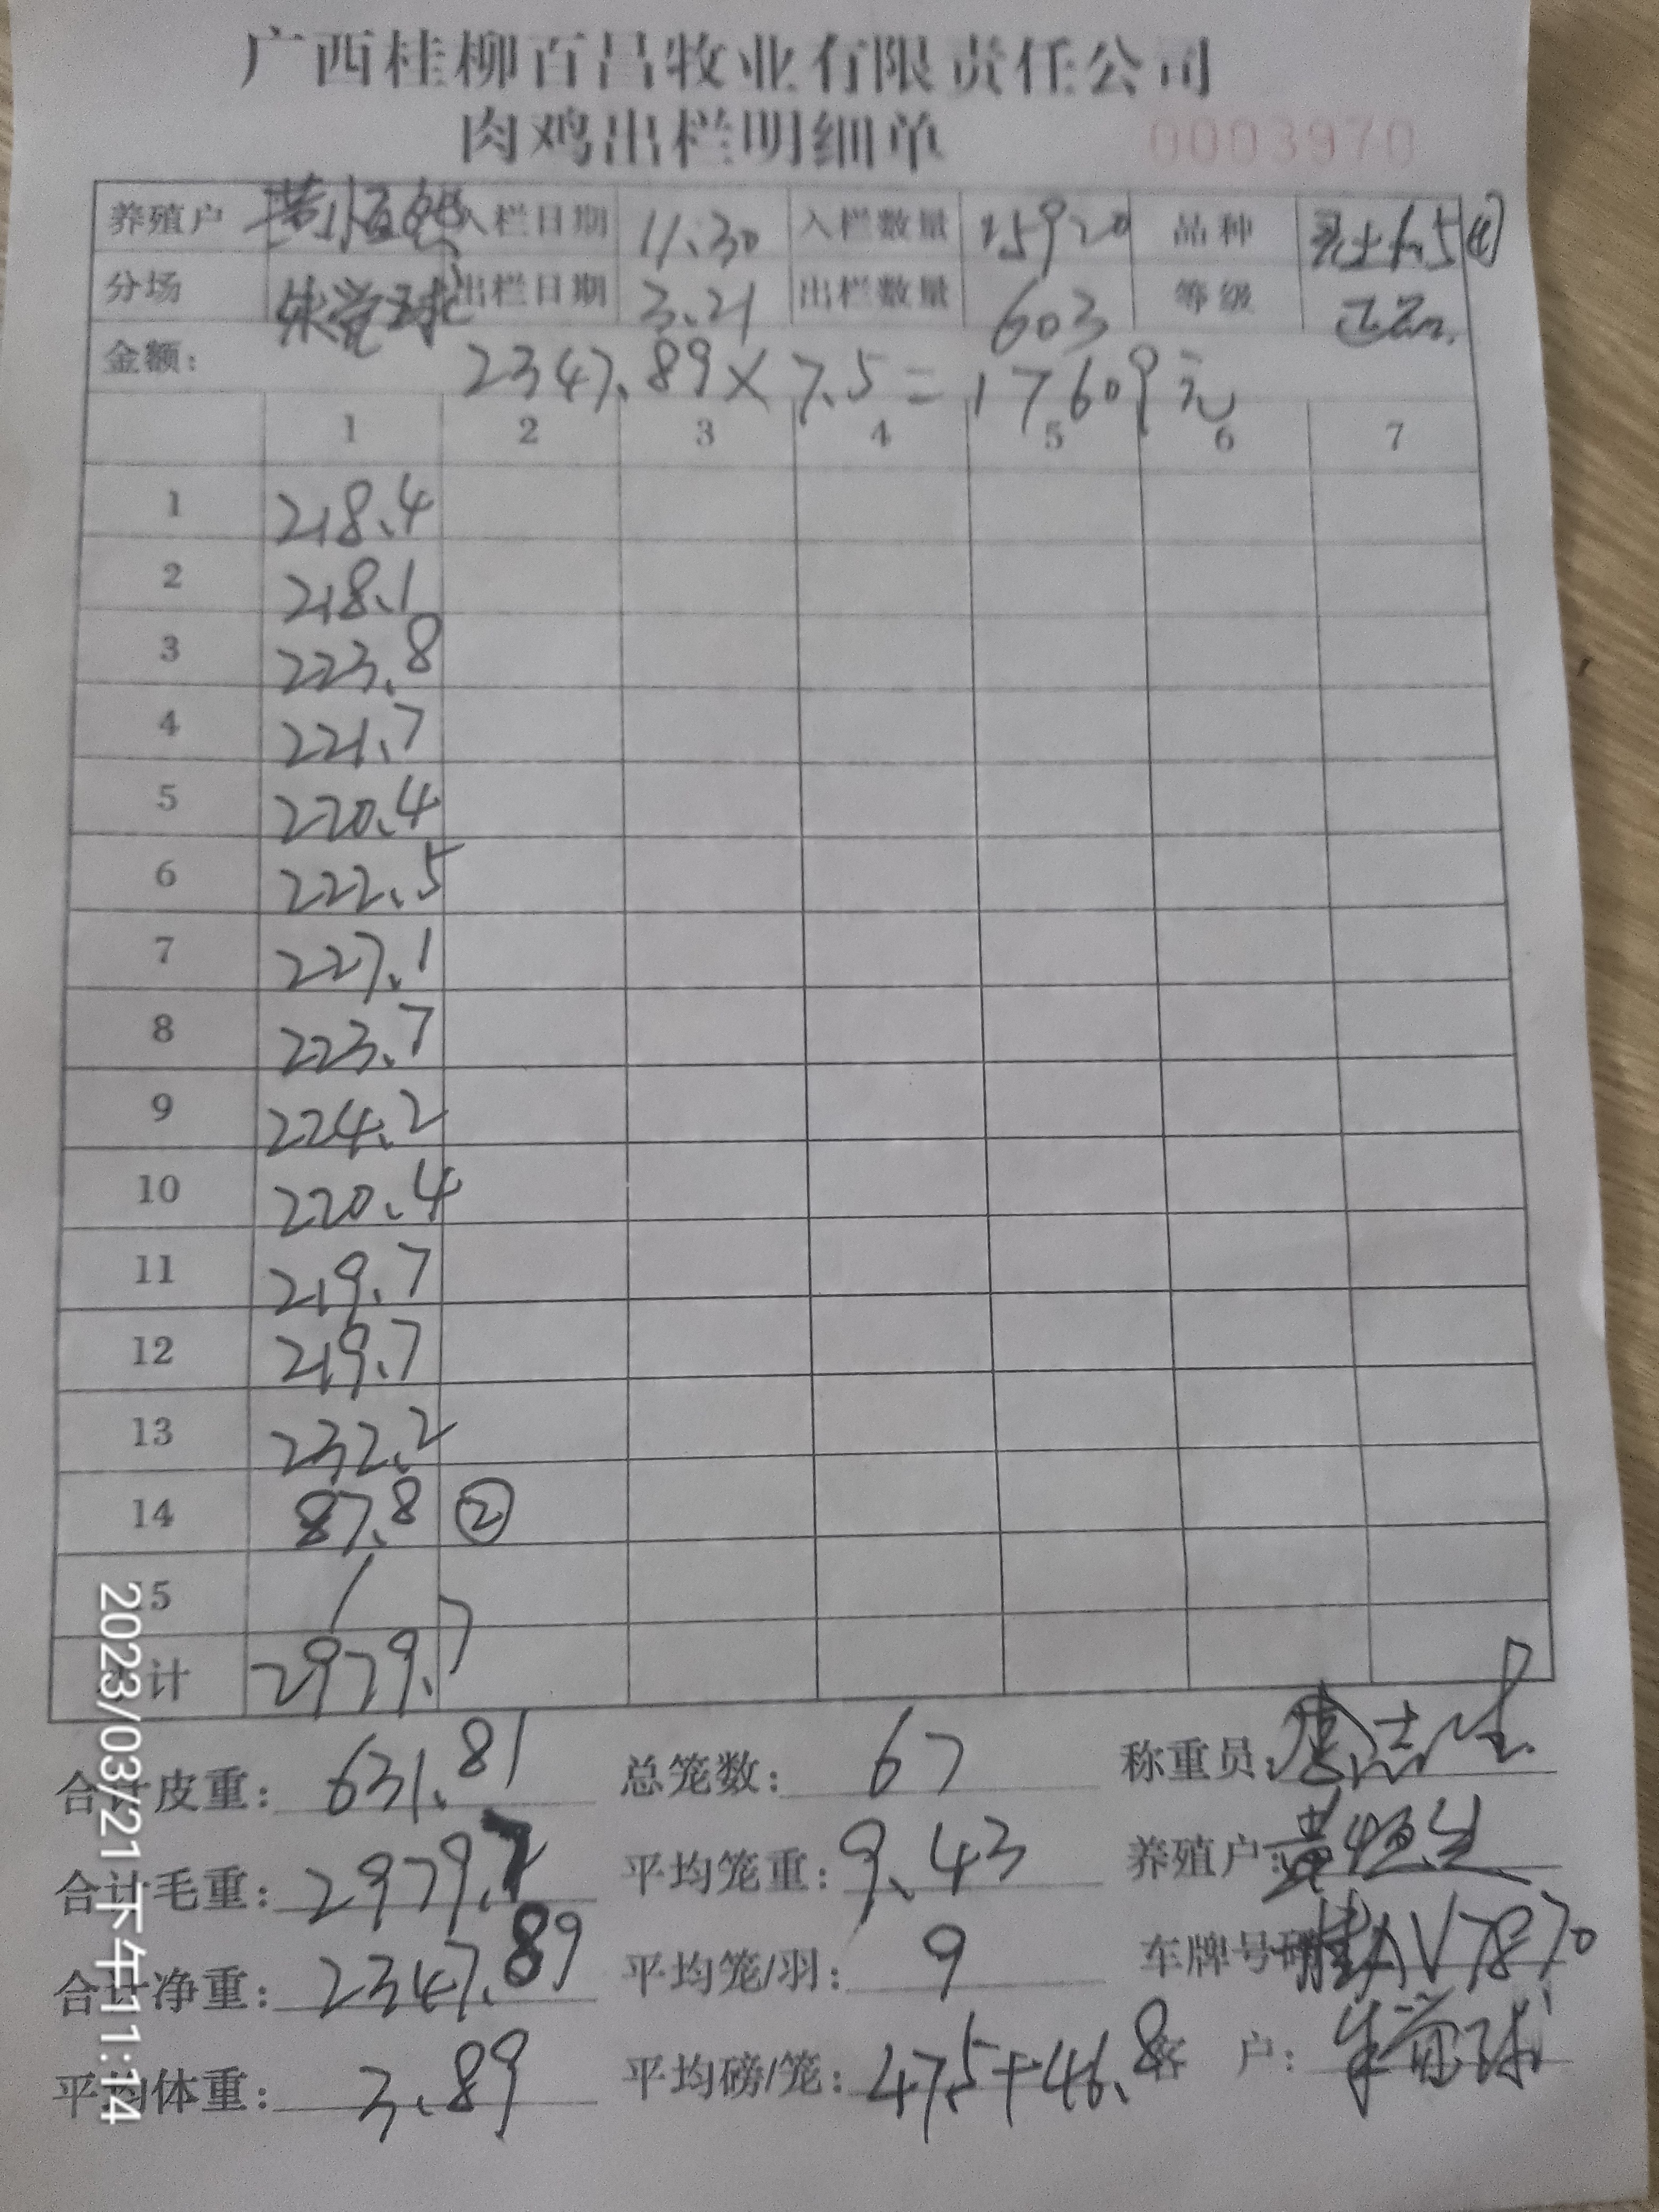 广西桂柳百昌牧业有限责任公司
肉鸡出栏明细单 0003970
养殖户 黄恒 入栏日期 11.30 入栏数量 15920 品种
分场 朱觉球 出栏日期 3.21 出栏数量 603 等级 正品
金额: 2347.89×7.5=17609元
1 2 3 4 5 6 7
1 218.4
2 218.1
3 223.8
4 221.7
5 220.4
6 222.5
7 227.1
8 223.7
9 224.2
10 220.4
11 219.7
12 219.7
13 232.2
14 87.8 ②
15 /
计 2979.7
合计皮重: 631.81 总笼数: 67 称重员:
合计毛重: 2979.7 平均笼重: 9.43 养殖户: 黄恒生
合计净重: 2347.89 平均笼/羽: 9 车牌号码 桂AV7870
平均体重: 3.89 平均磅/笼: 47.5+46.8 客 户: 朱觉球
2023/03/21 下午11:14